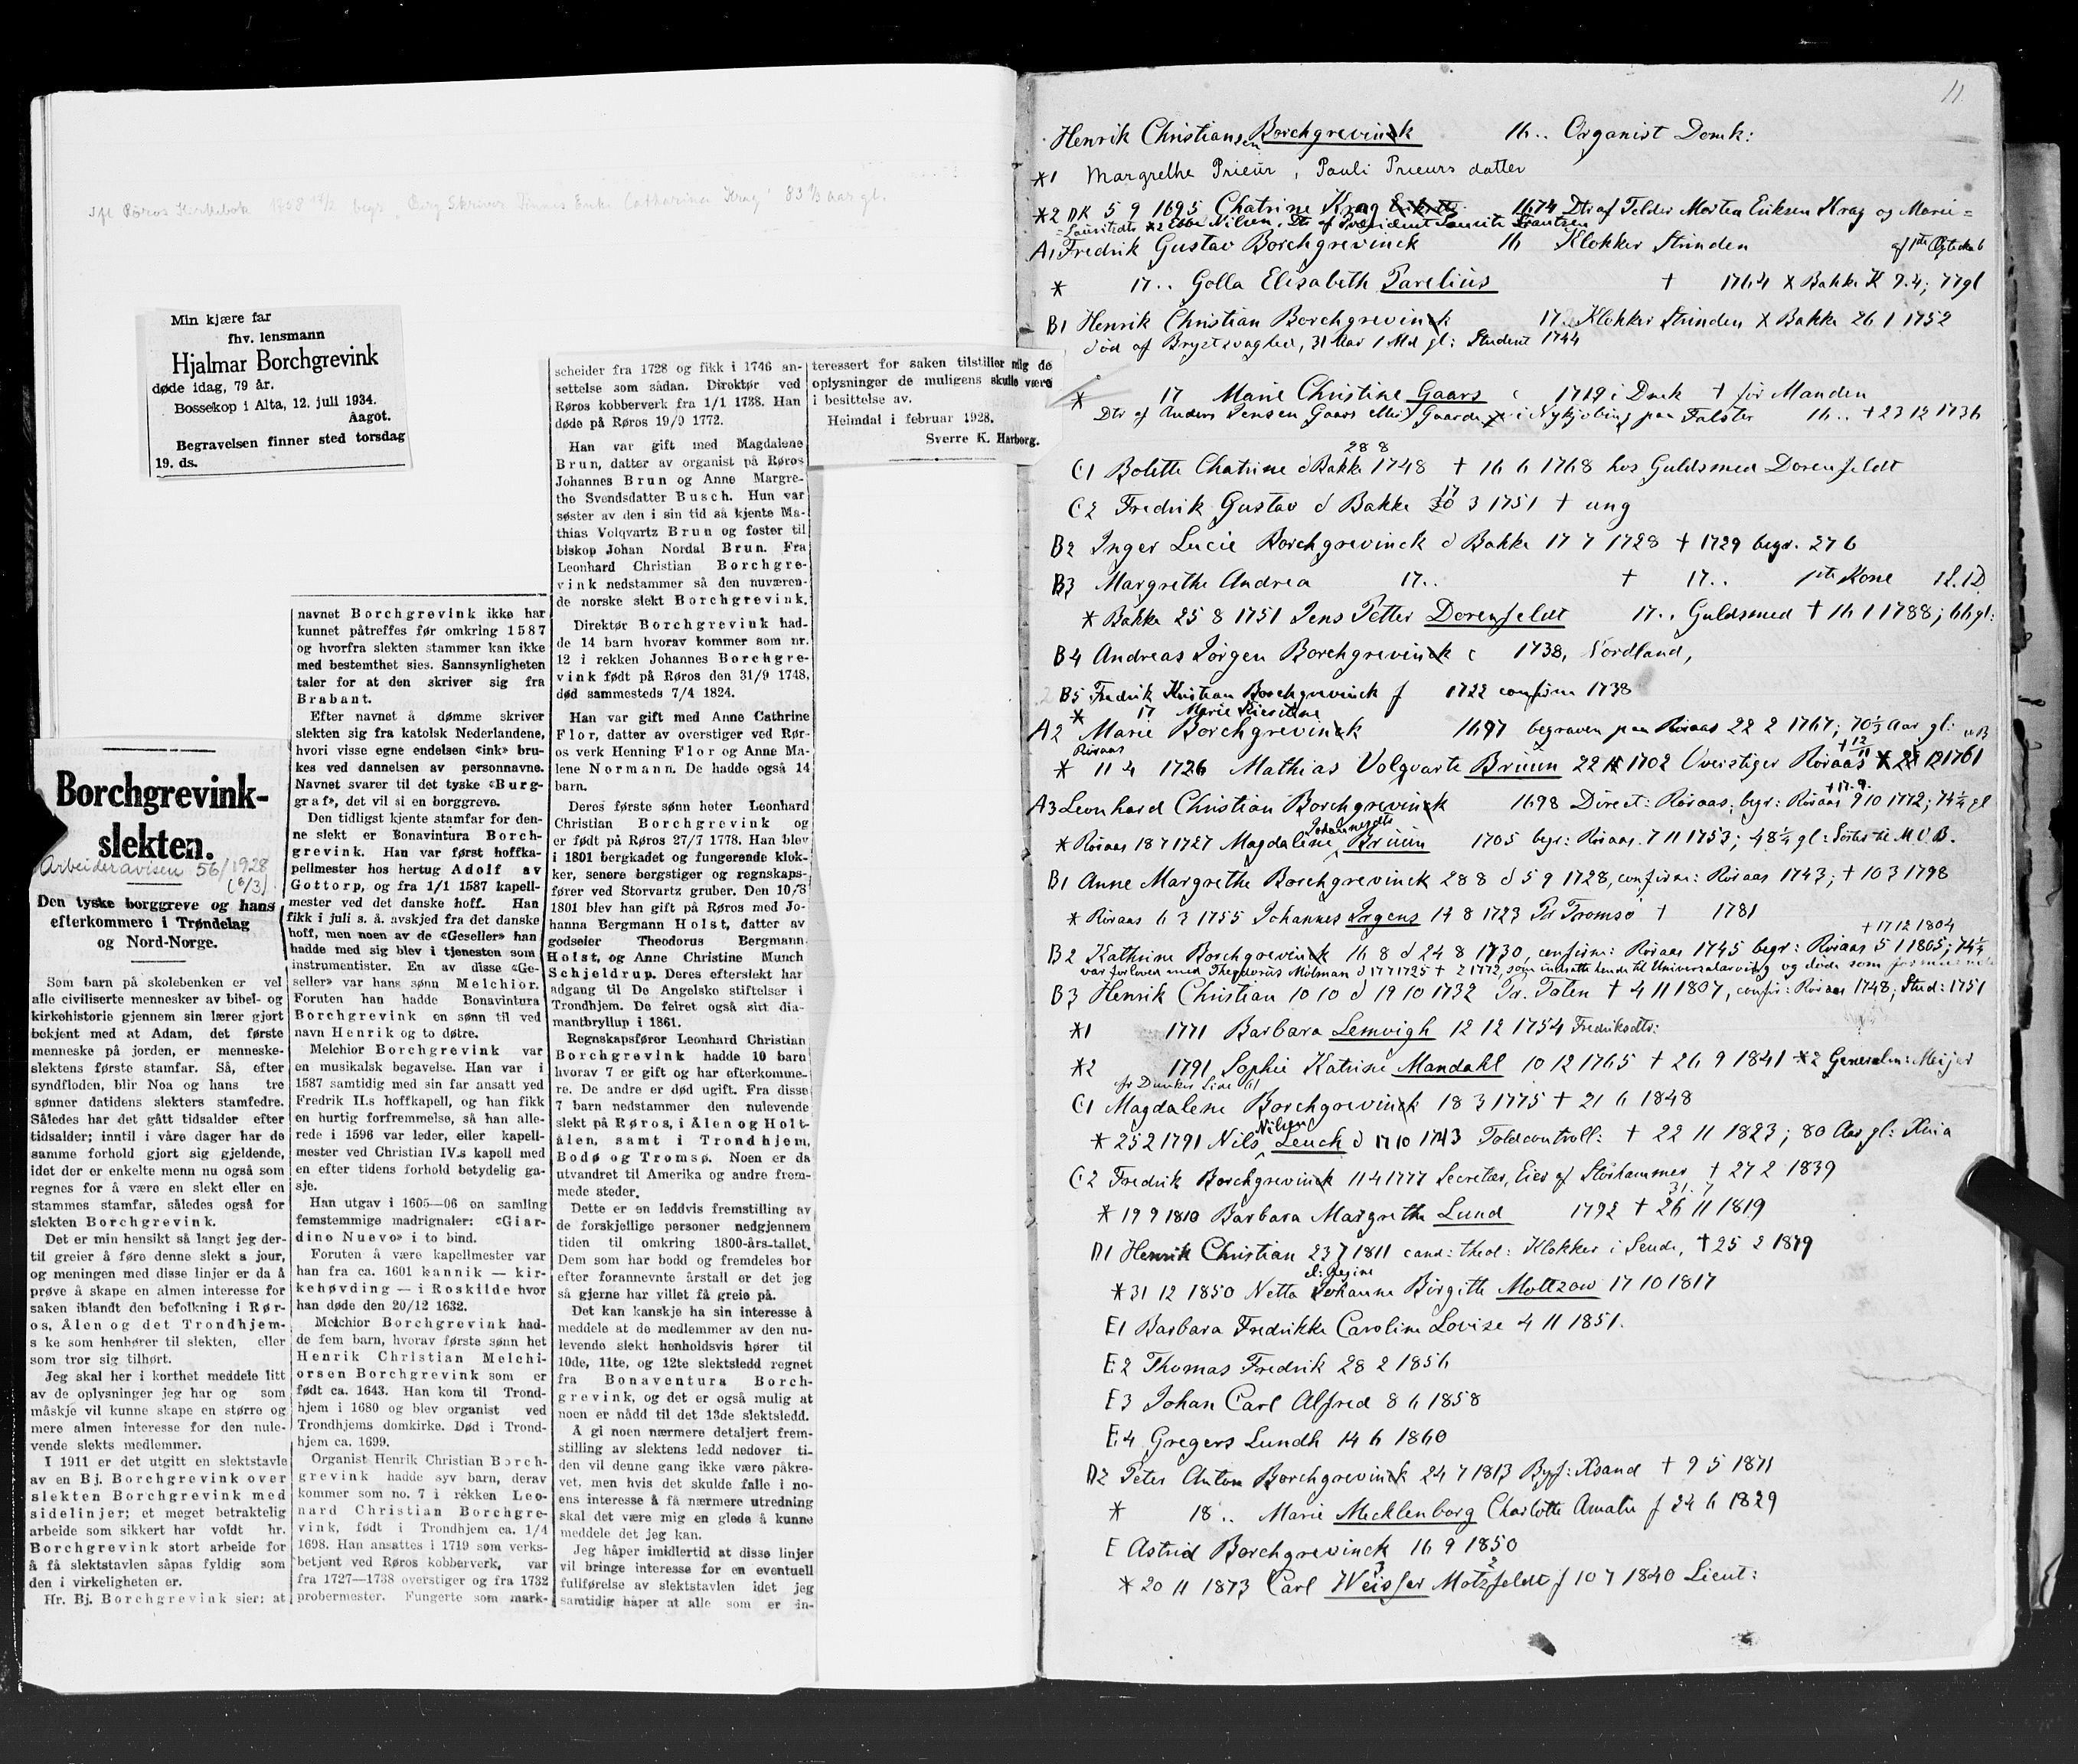 Min kjære far
fhv. lensmann
Hjalmar Borchgrevink
døde idag, 79 år.
Bossekop i Alta, 12. juli 1934.
Aagot.
Begravelsen finner sted torsdag
19. ds.
Borchgrevink-
slekten.
Arbeideravisen 56/1928
(6/3)
Den tyske borggreve og hans
efterkommere i Trøndelag
og Nord-Norge.
Som barn på skolebenken er vel
alle civiliserte mennesker av bibel- og
kirkehistorie gjennem sin lærer gjort
bekjent med at Adam, det første
menneske på jorden, er menneske-
slektens første stamfar. Så, efter
syndfloden, blir Noa og hans tre
sønner datidens slekters stamfedre.
Således har det gått tidsalder efter
tidsalder; inntil i våre dager har de
samme forhold gjort sig gjeldende,
idet der er enkelte menn nu også som
regnes for å være en slekt eller en
stammes stamfar, således også for
slekten Borchgrevink.
Det er min hensikt så langt jeg der-
til greier å føre denne slekt a jour,
og meningen med disse linjer er da å
prøve å skape en almen interesse for
saken iblandt den befolkning i Rør-
os, Ålen og det Trondhjem-
s ke som henhører til slekten, eller
som tror sig tilhørt.
Jeg skal her i korthet meddele litt
av de oplysninger jeg har og som
måskje vil kunne skape en større og
mere almen interesse for den nule-
vende slekts medlemmer.
I 1911 er det utgitt en slektstavle
av en Bj. Borchgrevink over
slekten Borchgrevink med
sidelinjer; et meget betraktelig
arbeide som sikkert har voldt hr.
Borchgrevink stort arbeide for
å få slektstavlen såpas fyldig som
den i virkeligheten er.
Hr. Bj. Borchgrevink sier: at
navnet Borchgrevink ikke har
kunnet påtreffes før omkring 1587
og hvorfra slekten stammer kan ikke
med bestemthet sies. Sannsynligheten
taler for at den skriver sig fra
Brabant.
Efter navnet å dømme skriver
slekten sig fra katolsk Nederlandene,
hvori visse egne endelsen «ink» bru-
kes ved dannelsen av personnavne.
Navnet svarer til det tyske «Burg-
graf», det vil si en borggreve.
Den tidligst kjente stamfar for den-
ne slekt er Bonavintura Borch-
grevink. Han var først hoffka-
pellmester hos hertug Adolf av
Gottorp, og fra 1/1 1587 kapell-
mester ved det danske hoff. Han
fikk i juli s. å. avskjed fra det danske
hoff, men noen av de «Geseller» han
hadde med sig blev i tjenesten som
instrumentister. En av disse «Ge-
seller» var hans sønn Melchior.
Foruten han hadde Bonavintura
Borchgrevink en sønn til ved
navn Henrik og to døtre.
Melchior Borchgrevink var
en musikalsk begavelse. Han var i
1587 samtidig med sin far ansatt ved
Fredrik II.s hoffkapell, og han fikk
en hurtig forfremmelse, så han alle-
rede i 1596 var leder, eller kapell-
mester ved Christian IV.s kapell med
en efter tidens forhold betydelig ga-
sje.
Han utgav i 1605—06 en samling
femstemmige madrignaler: «Giar-
dino Nuevo» i to bind.
Foruten å være kapellmester var
han fra ca. 1601 kannik — kir-
kehøvding — i Roskilde hvor
han døde den 20/12 1632.
Melchior Borchgrevink had-
de fem barn, hvorav første sønn het
Henrik Christian Melchi-
orsen Borchgrevink som er
født ca. 1643. Han kom til Trond-
hjem i 1680 og blev organist ved
Trondhjems domkirke. Død i Trond-
hjem ca. 1699.
Organist Henrik Christian Borch-
grevink hadde syv barn, derav
kommer som no. 7 i rekken Leo-
nard Christian Borchgre-
vink, født i Trondhjem ca. 1/4
1698. Han ansattes i 1719 som verks-
betjent ved Røros kobberverk, var
fra 1727—1738 overstiger og fra 1732
probermester. Fungerte som mark-
scheider fra 1728 og fikk i 1746 an-
settelse som sådan. Direktør ved
Røros kobberverk fra 1/1 1738. Han
døde på Røros 19/9 1772.
Han var gift med Magdalene
Brun, datter av organist på Røros
Johannes Brun og Anne Margre-
the Svendsdatter Busch. Hun var
søster av den i sin tid så kjente Ma-
thias Volqvartz Brun og foster til
biskop Johan Nordal Brun. Fra
Leonhard Christian Borchgre-
vink nedstammer så den nuværen-
de norske slekt Borchgrevink.
Direktør Borchgrevink had-
de 14 barn hvorav kommer som nr.
12 i rekken Johannes Borchgre-
vink født på Røros den 31/9 1748,
død sammesteds 7/4 1824.
Han var gift med Anne Cathrine
Flor, datter av overstiger ved Rør-
os verk Henning Flor og Anne Ma-
lene Normann. De hadde også 14
barn.
Deres første sønn heter Leonhard
Christian Borchgrevink og
er født på Røros 27/7 1778. Han blev
i 1801 bergkadet og fungerende klok-
ker, senere bergstiger og regnskaps-
fører ved Storvartz gruber. Den 10/3
1801 blev han gift på Røros med Jo-
hanna Bergmann Holst, datter av
godseier Theodorus Bergmann
Holst, og Anne Christine Munch
Schjeldrup. Deres efterslekt har
adgang til De Angelske stiftelser i
Trondhjem. De feiret også sitt dia-
mantbryllup i 1861.
Regnskapsfører Leonhard Christian
Borchgrevink hadde 10 barn
hvorav 7 er gift og har efterkomme-
re. De andre er død ugift. Fra disse
7 barn nedstammer den nulevende
slekt på Røros, i Ålen og Holt-
ålen, samt i Trondhjem,
Bodø og Tromsø. Noen er da
utvandret til Amerika og andre frem-
mede steder.
Dette er en leddvis fremstilling av
de forskjellige personer nedgjennem
tiden til omkring 1800-års-tallet.
Dem som har bodd og fremdeles bor
efter forannevnte årstall er det jeg
så gjerne har villet få greie på.
Det kan kanskje ha sin interesse å
meddele at de medlemmer av den nu-
levende slekt henholdsvis hører til
10de, 11te, og 12te slektsledd regnet
fra Bonaventura Borch-
grevink, og det er også mulig at
noen er nådd til det 13de slektsledd.
Å gi noen nærmere detaljert frem-
stilling av slektens ledd nedover ti-
den vil denne gang ikke være påkre-
vet, men hvis det skulde falle i no-
ens interesse å få nærmere utredning
skal det være mig en glede å kunne
meddele det jeg kan.
Jeg håper imidlertid at disse linjer
vil bringe interesse for en eventuell
fullførelse av slektstavlen idet jeg
samtidig håper at alle som er in-
teressert for saken tilstiller mig de
oplysninger de muligens skulle være
i besittelse av.
Heimdal i februar 1928.
Sverre K. Harborg.
11
Henrik Christiansen Borchgrevinck 16.. Organist Domk:
*1 Margrethe Prieur, Pauli Prieurs datter
*2 DK 5 9 1695 Chatrine Krag 1674 Dtr af Tolder Morten Eriksen Krag og Marie=
=Lauritsdtr *2 Ebbe Nilsen, Dtr af Præsident Laurits
A1 Fredrik Gustav Borchgrevinck 16 Klokker Strinden af 1ste Ægteskab
* 17.. Golla Elisabeth Parelius † 1764 X Bakke K 9.4; 77 gl
B1 Henrik Christian Borchgrevinck 17.. Klokker Strinden X Bakke 26 1 1752
død af Brystsvaghed, 31 Aar 1 Md gl: Student 1744
* 17 Marie Christine Gaars 1719 i Dmk † før Manden
Dtr af Anders Jensen Gaars eller Gaarde i Nykjøbing paa Falster 16.. † 23 12 1736
C1 Bolette Chatrine d Bakke 28 8 1748 † 16 6 1768 hos Guldsmed Dorenfeldt
C2 Fredrik Gustav d Bakke 17 3 1751 † ung
B2 Inger Lucie Borchgrevinck d Bakke 17 7 1728 † 1729 begr. 27 6
B3 Margrethe Andrea 17.. † 17.. 1ste Kone
* Bakke 25 8 1751 Jens Petter Dorenfeldt 17.. Guldsmed † 16 1 1788; 66 gl:
B4 Andreas Jørgen Borchgrevinck c 1738, Nordland,
B5 Fredrik Kristian Borchgrevinck f 1722 confirm 1738
* 17 Marie
A2 Marie Borchgrevinck 1697 begraven paa Røraas 22 2 1767; 70½ Aar gl:
* Røraas 11 4 1726 Mathias Volqvarts Bruun 22 1702 Overstiger Røraas 1761
A3 Leonhard Christian Borchgrevinck 1698 Direct: Røraas, begr: Røraas † 17.9. 9 10 1772; 74¼ gl
* Røraas 18 7 1727 Magdalene Johannesdtr Bruun 1705 begr: Røraas 7 11 1753; 48¼ gl: Søster til M V B.
B1 Anne Margrethe Borchgrevinck 28 8 d 5 9 1728, confirm: Røraas 1743; † 10 3 1798
* Røraas 6 3 1755 Johannes Irgens 14 8 1723 Pr Tromsø † 1781
B2 Kathrine Borchgrevinck 16 8 d 24 8 1730, confirm: Røraas 1745 begr: Røraas † 17 12 1804 5 1 1805; 74¼
var forlovet med Theodorus Molman d 17 7 1725 † 2 1772, som indsatte hende til Universalarving og døde som
B3 Henrik Christian 10 10 d 19 10 1732 Pr. Polen † 4 11 1807, confir: Røraas 1748, Stud: 1751
*1 1771 Barbara Lemvigh 12 12 1754 Fredriksdtr:
*2 1791 Sophie Katrine Mandahl 10 12 1765 † 26 9 1841 *2 Generalm: Meijer
C1 Magdalene Borchgrevinck 18 3 1775 † 21 6 1848
* 25 2 1791 Nils Nilsen Lenck d 17 10 1743 Toldcontroll: † 22 11 1823; 80 Aar gl: Xnia
C2 Fredrik Borchgrevinck 11 4 1777 Secretær, Eier af Storhammer † 27 2 1839
* 19 9 1810 Barbara Margrethe Lund 31. 7 1792 † 26 11 1819
D1 Henrik Christian 23 7 1811 cand: theol: Klokker i Lende, † 25 2 1879
* 31 12 1850 Netta Johanne el: Regine Birgitte Moltzow 17 10 1817
E1 Barbara Fredrikke Caroline Lovise 4 11 1851.
E2 Thomas Fredrik 28 2 1856
E3 Johan Carl Alfred 8 6 1858
E4 Gregers Lundh 14 6 1860
D2 Peter Anton Borchgrevinck 24 7 1813 Byf: Xsand † 9 5 1871
* 18.. Marie Mecklenborg Charlotte Amalie f 24 6 1829
E Astrid Borchgrevinck 16 9 1850
* 20 11 1873 Carl Weisser Motzfeldt f 10 7 1840 Lieut: